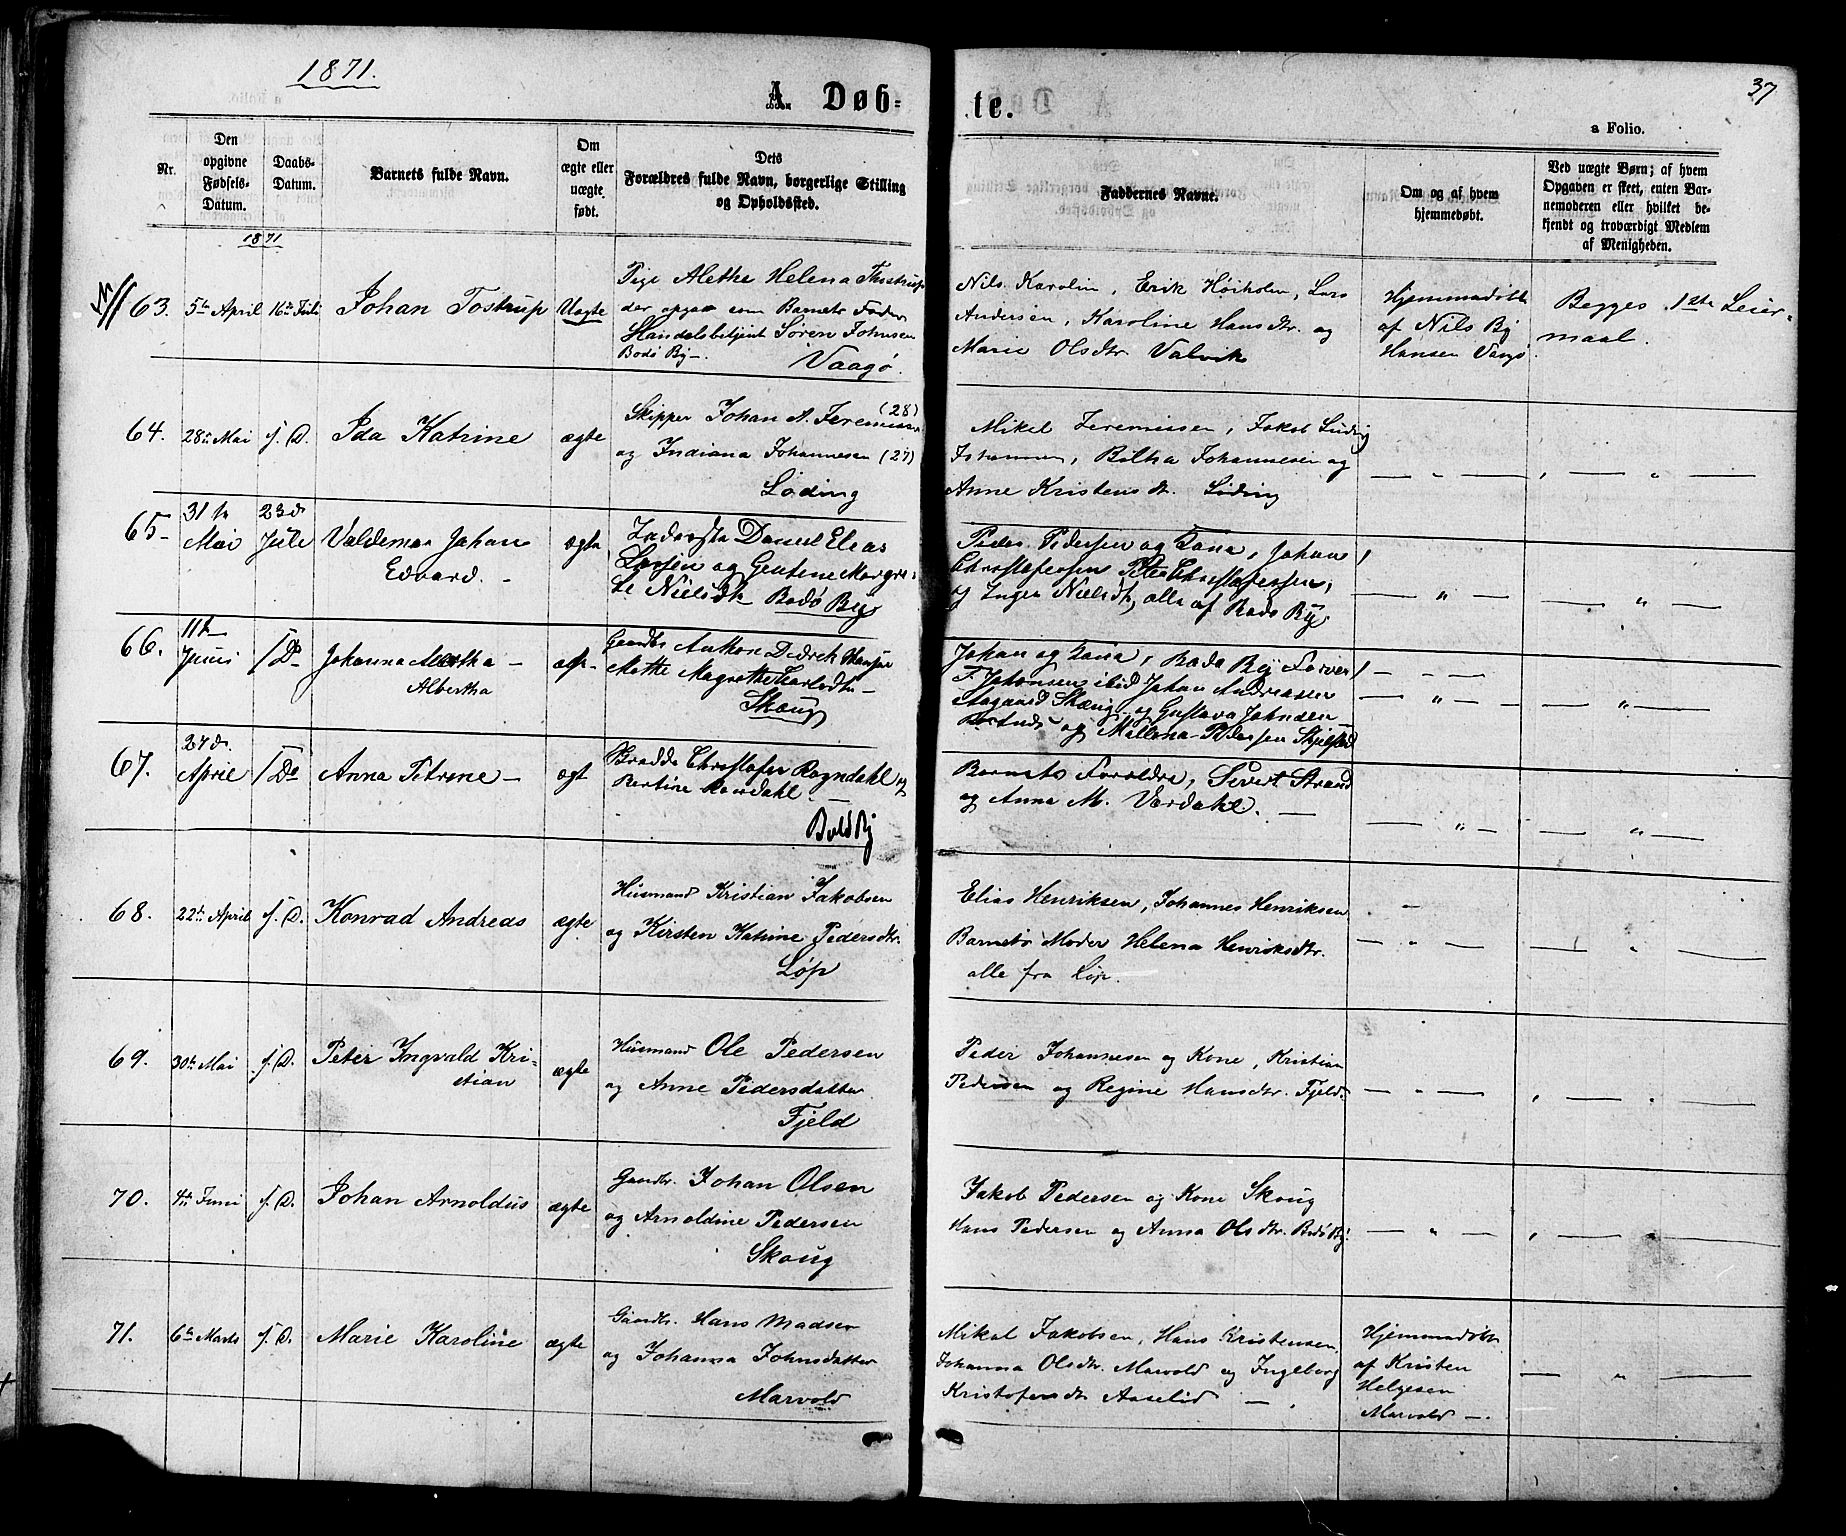 1871.
37
A Døb-
te.
a Folio.
Nr.
Den
opgivne
Fødsels-
Datum.
Daabs-
Datum.
Barnets fulde Navn.
Om
ægte eller
uægte
født.
Dets
Forældres fulde Navn, borgerlige Stilling
og Opholdssted.
Faddernes Navne.
Om og af hvem
hjemmedøbt.
Ved uægte Børn; af hvem
Opgaven er skeet, enten Bar-
nemoderen eller hvilket be-
kjendt og troværdigt Medlem
af Menigheden.
1871
63. 5te April 16de Juli Johan Tostrup Uægte
Pige Alethe Helena Thostrup
der opgav som Barnets Fader
Handelsbetjent Søren Johnsen
Bodø By.
Vaagø.
Nils Karolin, Erik Høiholm, Lars
Andersen, Karoline Hansdtr. og
Marie Olsdtr. Valvik
Hjemmedøbt
af Nils By
Hansen Vaagø
Begges 1ste Leier-
maal.
64. 28de Mai s. D. Ida Katrine ægte
Skipper Johan A. Jeremiassen (28)
og Indiana Johannesen (27)
Løding
Mikel Jeremiesen, Jakob Ludvig
Johannesen, Johannesen og
Anne Kristensdtr. Løding
65- 31te Mai 23de Juli Valdemar Johan
Edvard. - ægte
Daniel Elias
Larsen og Gentine Margre-
te Nielsdtr Bodø By
Peder Pedersen og Kona, Johan
Christofersen Peter Christofersen,
og Inger Nielsdtr, alle af Bodø By.
66. 11te Juni s D. Johanna
Albertha ægt-
Gaardbr Anthon Didrek Hansen
Mette Magrethe Karlsdtr -
Skoug
Johan og Kona, Bodø By
F. Johansen ibid Johan Andreassen
Skoug og Gustava Johnsen
og Mallena Pedersen
67. 27de April s D. Anna Petrine - ægt
Christofer Rogndahl og
Bertine
Bodø By
Barnets Foreldre, Sivert Strand
og Anna M. Vardahl. -
68. 22de April s. D. Konrad Andreas ægte
Husmand Kristian Jakobsen
og Kirsten Katrine Pedersdtr.
Løp
Elias Henriksen, Johannes Henriksen
Barnets Moder Helena Henriksdtr.
alle fra Løp.
69. 30te Mai s. D. Peter Ingvald Kri-
stian ægte
Husmand Ole Pedersen
og Anne Pedersdatter.
Fjeld
Peder Johannesen og Kone, Kristian
Pedersen og Regine Hansdtr. Fjeld.
70. 4de Juni s. D. Johan Arnoldus ægte
Gaardbr. Johan Olsen
og Arnoldine Pedersen
Skoug
Jakob Pedersen og Kone Skoug
Hans Pedersen og Anna Olsdtr. Bodø By.
71. 6te Marts s. D. Marie Karoline ægte
Gaardbr. Hans Madsen
og Johanna Johnsdatter
Marvold
Mikal Jakobsen, Hans Kristensen,
Johanna Olsdtr. Marvold og Ingeborg
Kristofersdtr. Aaselid -
Hjemmedøbt
af Kristen
Helgesen
Marvold -.